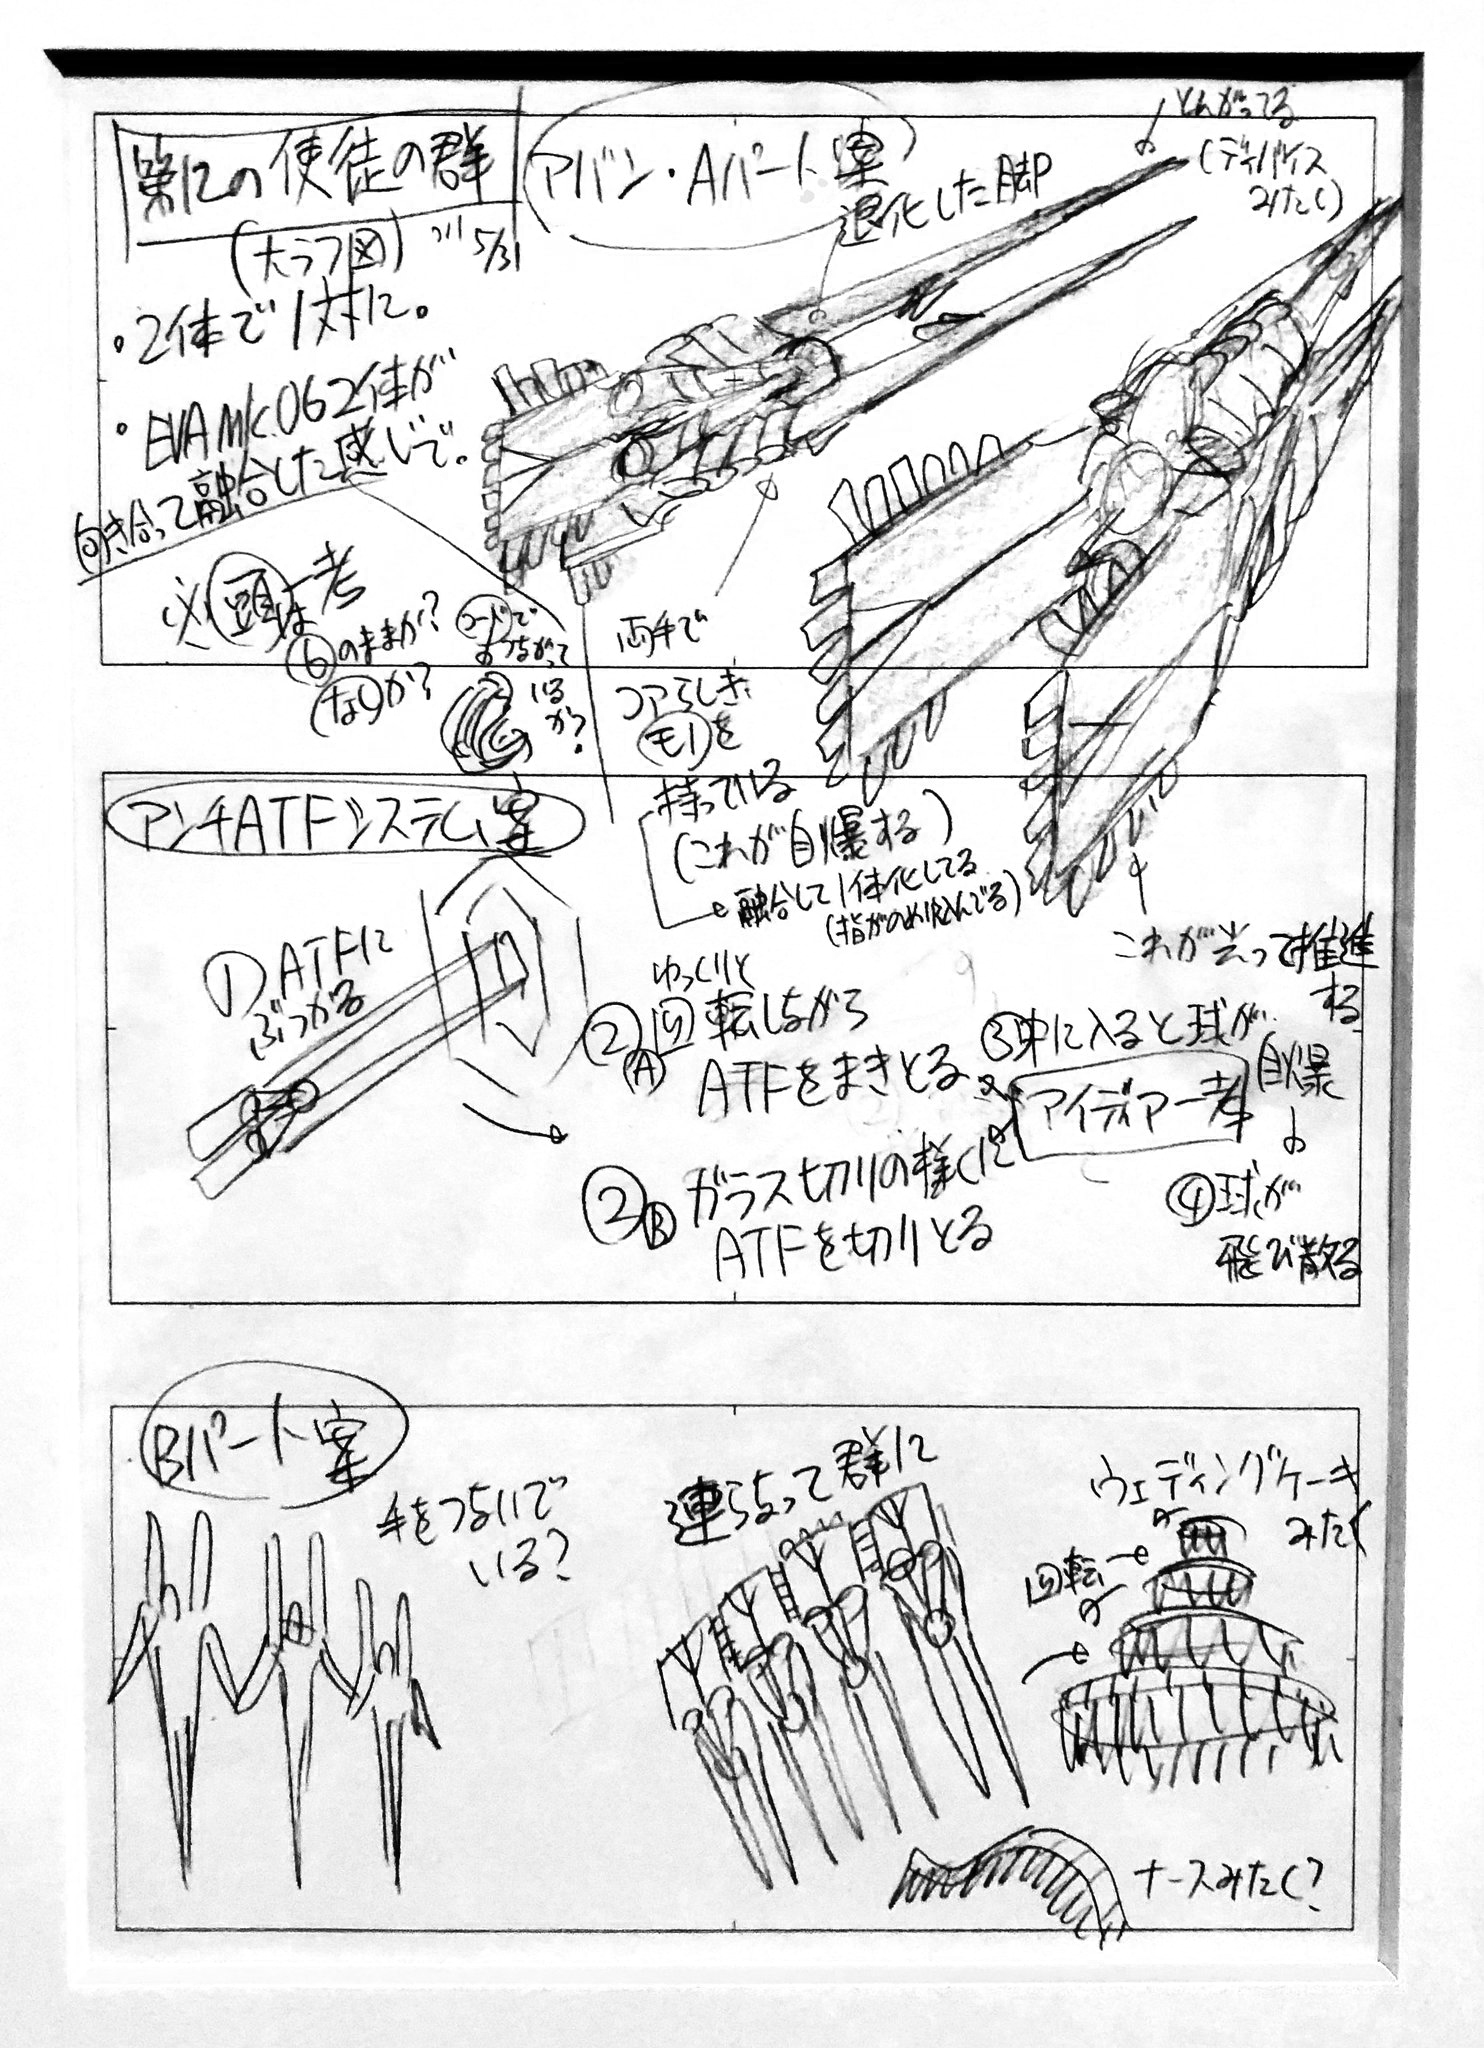 第12の使徒の群
(大ラフ図) 5/31
アバン・Aパート案
・2体で1対に。
・EVA Mk.06 2体が
向き合って融合した感じで。
※頭は一考
⑥のままか?
(なし)か?
コードで
つながって
いるか?
退化した脚
とがってる
(ディバイス
みたく)
両手で
コアらしき
モノを
持っている
(これが自爆する)
融合して1体化してる
(指がのめり込んでる)
これが光って推進
する
アンチATFシステム案
①ATFに
ぶつかる
ゆっくりと
②Ⓐ回転しながら
ATFをまきとる
②Ⓑガラス切りの様に
ATFを切りとる
アイディア一考
③中に入ると球が
自爆
④球が
飛び散る
Bパート案
手をつないで
いる?
連らなって群に
ウェディングケーキ
みたく
回転
ナースみたく?